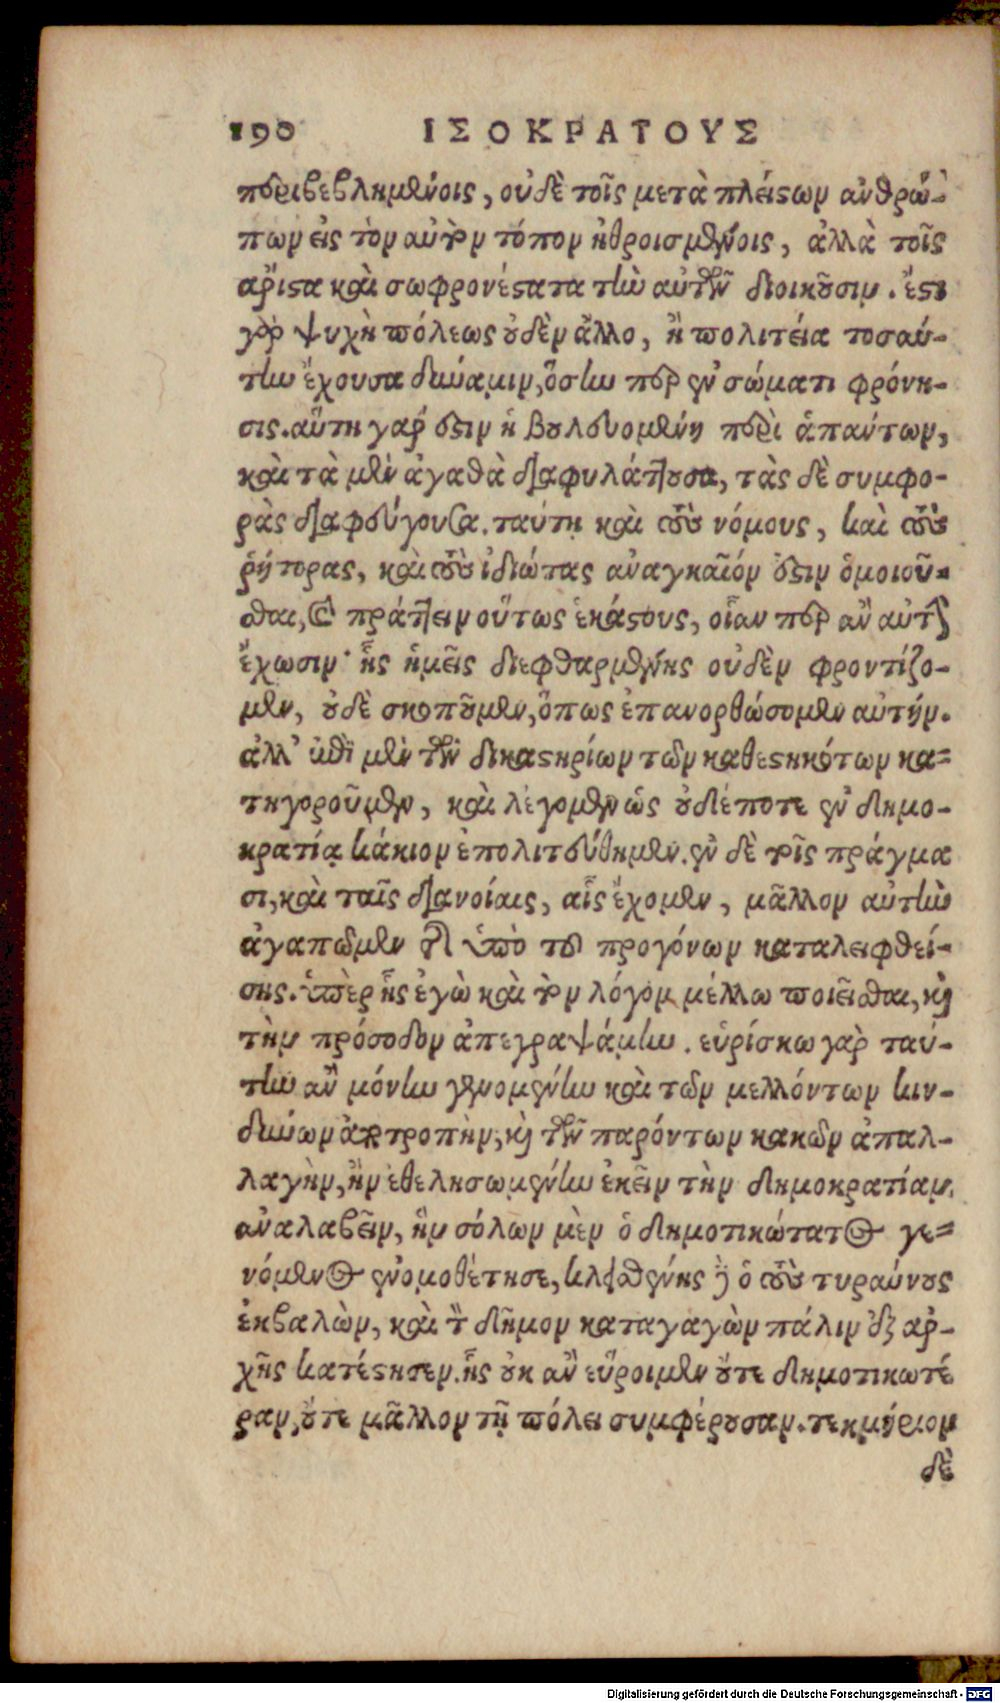 190 ΙΣΟΚΡΑΤΟΥΣ
περιβεβλημένοις, οὐδὲ τοῖς μετὰ πλείςων ἀνθρώ-
πων εἰς τὸν αὐτὸν τόπον ἠθροισμένοις, ἀλλὰ τοῖς
ἄριςα καὶ σωφρονέςατα τὴν αὑτῶν διοικοῦσιν. ἔςι
γὰρ ψυχὴ πόλεως οὐδὲν ἄλλο, ἢ πολιτεία τοσαύ-
την ἔχουσα δύναμιν, ὅσην περ ἐν σώματι φρόνη-
σις. αὕτη γάρ ἐςιν ἡ βουλευομένη περὶ ἁπάντων,
καὶ τὰ μὲν ἀγαθὰ διαφυλάττουσα, τὰς δὲ συμφο-
ρὰς διαφεύγουσα. ταύτῃ καὶ τοὺς νόμους, καὶ τοὺς
ῥήτορας, καὶ τοὺς ἰδιώτας ἀναγκαῖόν ἐςιν ὁμοιοῦ-
σθαι, καὶ πράττειν οὕτως ἑκάςους, οἵαν περ ἂν αὐτὴν
ἔχωσιν· ἧς ἡμεῖς διεφθαρμένης οὐδὲν φροντίζο-
μεν, οὐδὲ σκοποῦμεν, ὅπως ἐπανορθώσομεν αὐτήν.
ἀλλ' ἐπὶ μὲν τῶν δικαςηρίων τῶν καθεςηκότων κα-
τηγοροῦμεν, καὶ λέγομεν ὡς οὐδέποτε ἐν δημο-
κρατίᾳ κάκιον ἐπολιτεύθημεν. ἐν δὲ τοῖς πράγμα
σι, καὶ ταῖς διανοίαις, αἷς ἔχομεν, μᾶλλον αὐτὴν
ἀγαπῶμεν τῆς ὑπὸ τῶν προγόνων καταλειφθεί-
σης. ὑπὲρ ἧς ἐγὼ καὶ τὸν λόγον μέλλω ποιεῖσθαι, καὶ
τὴν πρόσοδον ἀπεγραψάμην. εὑρίσκω γὰρ ταύ-
την ἂν μόνην γενομένην καὶ τῶν μελλόντων κιν-
δύνων ἀποτροπὴν, καὶ τῶν παρόντων κακῶν ἀπαλ-
λαγὴν, ἢν ἐθελήσωμεν ἐκείνην τὴν δημοκρατίαν
ἀναλαβεῖν, ἣν σόλων μὲν ὁ δημοτικώτατος γε-
νόμενος ἐνομοθέτησε, κλεισθένης δὲ ὁ τοὺς τυράννους
ἐκβαλὼν, καὶ τὸν δῆμον καταγαγὼν πάλιν ἐξ ἀρ-
χῆς κατέςησεν. ἧς οὐκ ἂν εὕροιμεν οὔτε δημοτικωτέ
ραν, οὔτε μᾶλλον τῇ πόλει συμφέρουσαν. τεκμήριον
δὲ
Digitalisierung gefördert durch die Deutsche Forschungsgemeinschaft - DFG